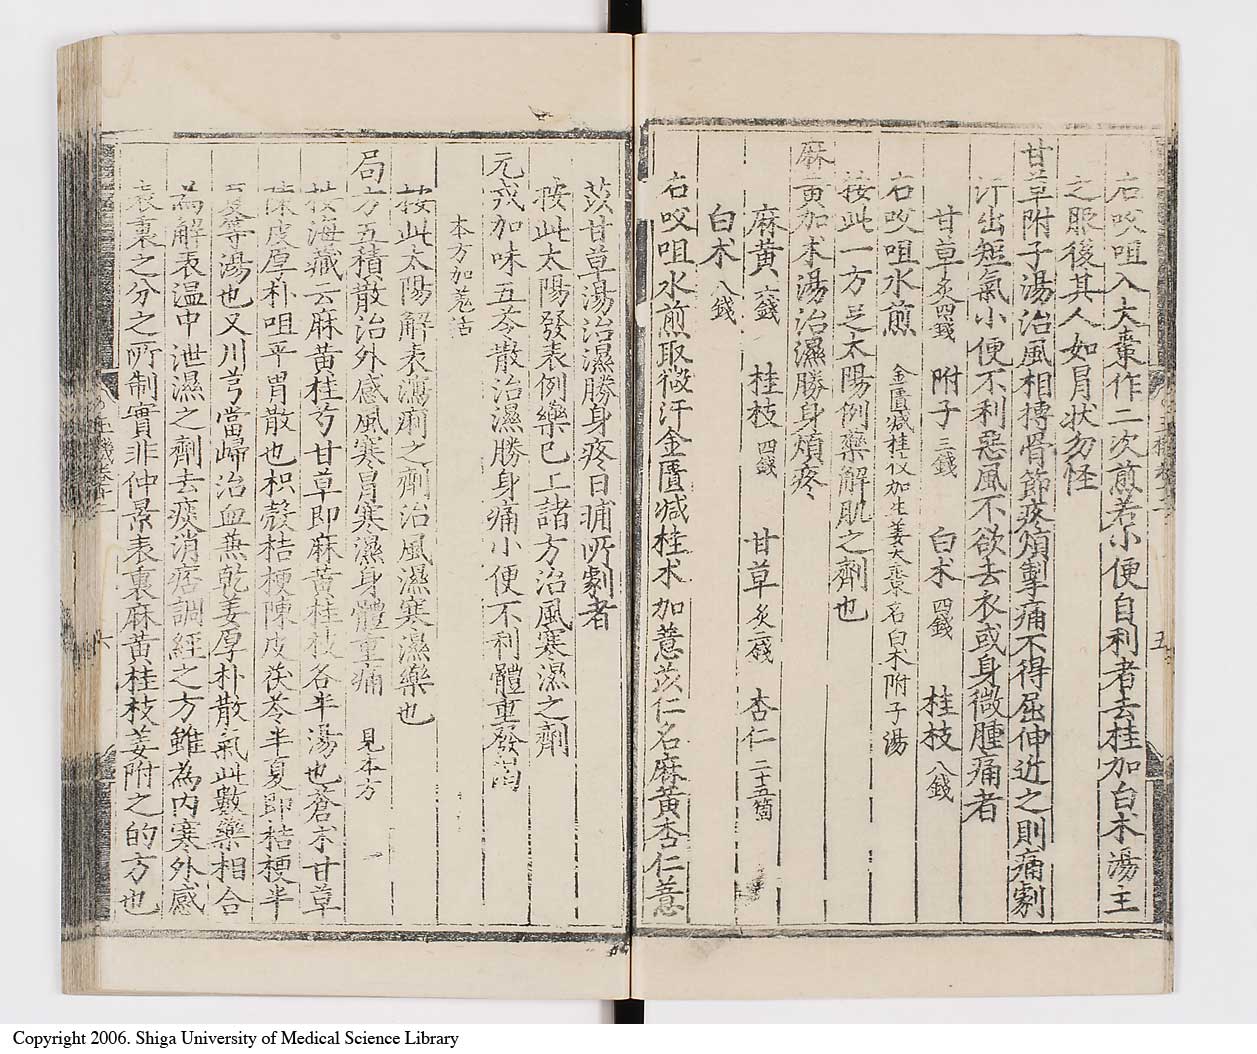 右㕮咀入大棗作二次煎若小便自利者去桂加白朮湯主
之服後其人如冐状勿怪
甘草附子湯治風相搏骨節疼煩掣痛不得屈伸近之則痛劇
汗出短氣小便不利惡風不欲去衣或身微腫痛者
甘草炙四錢 附子三錢 白朮四錢 桂枝八錢
右㕮咀水煎 金匱减桂仅加生姜大棗名白朮附子湯
按此一方足太陽例藥解肌之劑也
麻黄加朮湯治濕勝身煩疼
麻黄六錢 桂枝四錢 甘草炙二錢 杏仁二十五箇
白朮八錢
右㕮咀水煎取微汗金匱减桂朮加薏苡仁名麻黄杏仁薏
苡甘草湯治濕勝身疼日晡所劇者
按此太陽發表例藥已上諸方治風寒濕之劑
元戎加味五苓散治濕勝身痛小便不利體重發渴
本方加羗活
按此太陽解表瀉痢之劑治風濕寒濕藥也
局方五積散治外感風寒冐寒濕身體重痛 見本方
按海藏云麻黄桂芍甘草即麻黄桂枝各半湯也蒼朮甘草
陳皮厚朴咀平胃散也枳殼桔梗陳皮茯苓半夏即桔梗半
夏等湯也又川芎當歸治血兼乾姜厚朴散氣此數藥相合
為解表温中泄濕之劑去痰消痞調經之方雖為内寒外感
表裏之分之所制實非仲景表裏麻黄桂枝姜附之的方也
五
六
Copyright 2006. Shiga University of Medical Science Library